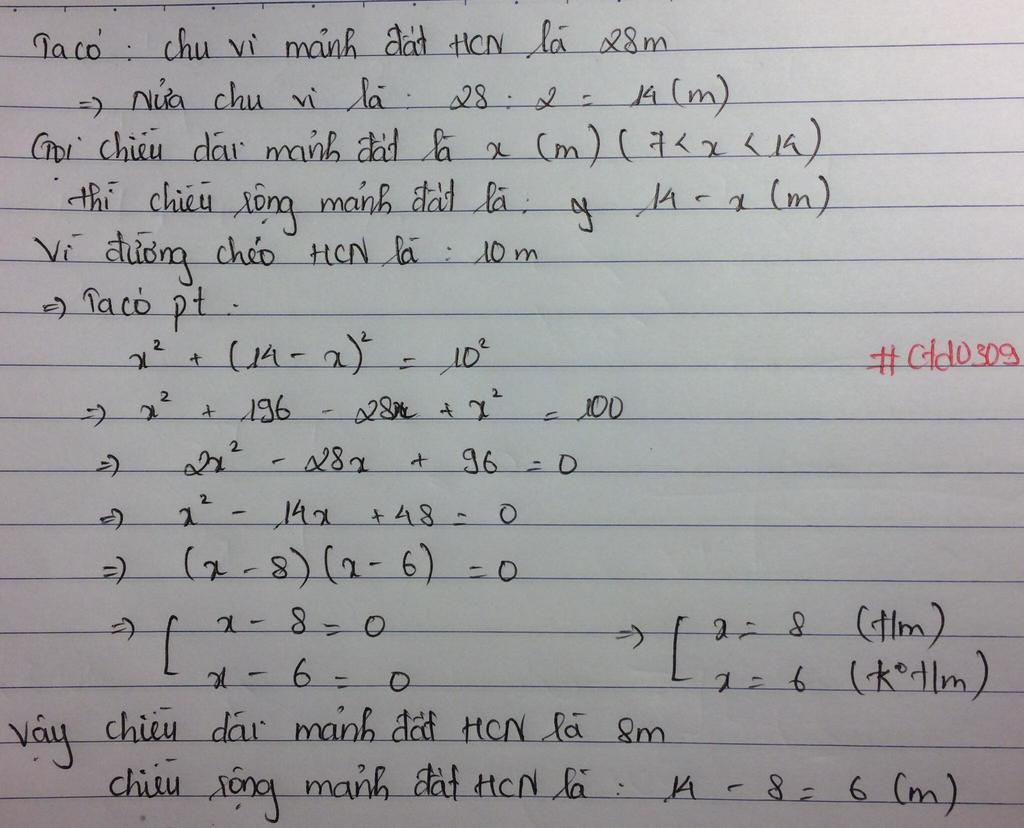 Ta có : chu vi mảnh đất HCN là 28m
=> Nửa chu vi là : 28 : 2 = 14 (m)
Gọi chiều dài mảnh đất là x (m) ( 7 < x < 14 )
thì chiều rộng mảnh đất là : y 14 - x (m)
Vì đường chéo HCN là : 10 m
=> Ta có pt :
x² + (14 - x)² = 10²
#Ctd0309
=> x² + 196 - 28x + x² = 100
=> 2x² - 28x + 96 = 0
=> x² - 14x + 48 = 0
=> (x - 8)(x - 6) = 0
=> [ x - 8 = 0 => [ x = 8 (t/m)
x - 6 = 0 x = 6 (k° t/m)
Vậy chiều dài mảnh đất HCN là 8m
chiều rộng mảnh đất HCN là : 14 - 8 = 6 (m)